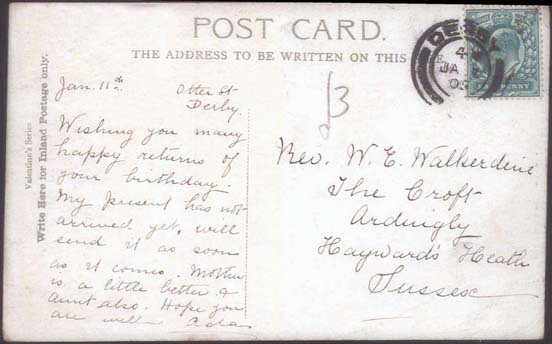 POST CARD.
THE ADDRESS TO BE WRITTEN ON THIS
Valentine's Series
Write Here for Inland Postage only.
Jan. 11th
Otter St
Derby.
Wishing you many
happy returns of
your birthday.
My present has not
arrived yet, will
send it as soon
as it comes. Mother
is a little better &
aunt also. Hope you
are well Ada
13
Rev. W. E. Walkerdine
The Croft
Ardingly
Hayward's Heath
Sussex
DERBY
JA